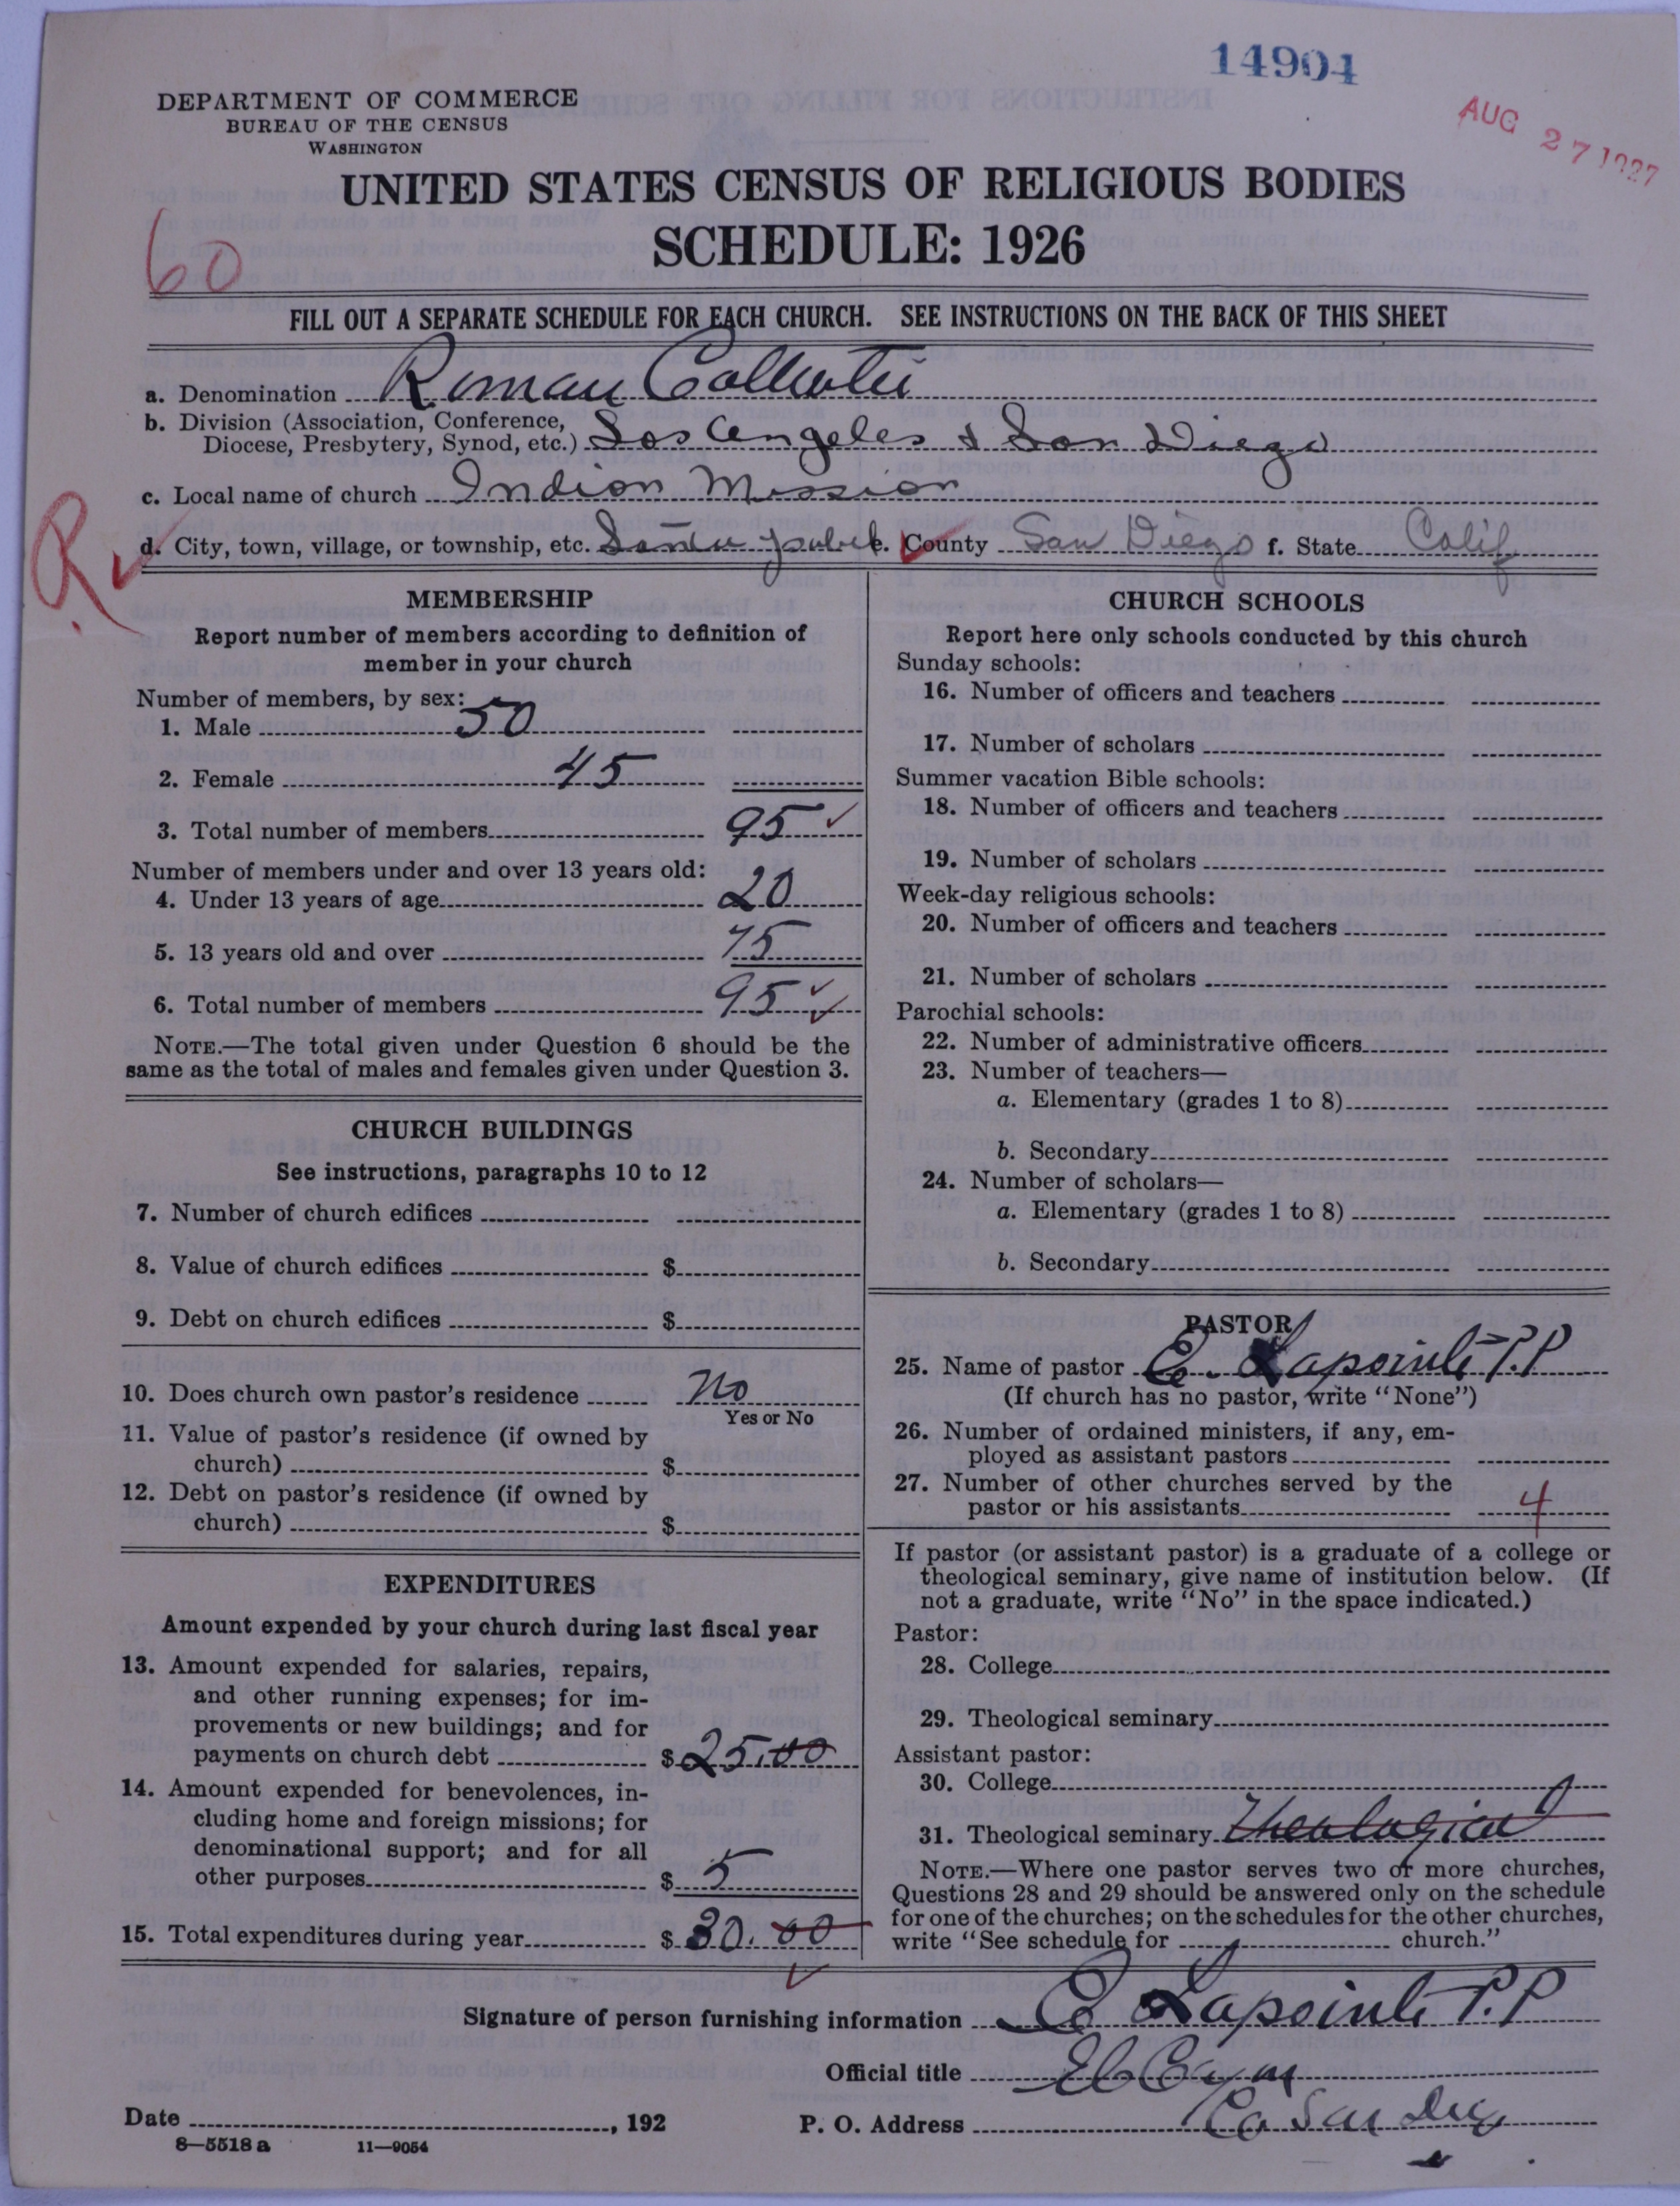 14904
AUG 27 1927
DEPARTMENT OF COMMERCE
BUREAU OF THE CENSUS
WASHINGTON
UNITED STATES CENSUS OF RELIGIOUS BODIES
SCHEDULE: 1926
60
FILL OUT A SEPARATE SCHEDULE FOR EACH CHURCH. SEE INSTRUCTIONS ON THE BACK OF THIS SHEET
a. Denomination Roman Catholic
b. Division (Association, Conference,
Diocese, Presbytery, Synod, etc.) Los Angeles & San Diego
c. Local name of church Indian Mission
R
d. City, town, village, or township, etc. Santa Ysabel e. County San Diego f. State Calif
MEMBERSHIP
Report number of members according to definition of
member in your church
Number of members, by sex:
1. Male 50
2. Female 45
3. Total number of members 95
Number of members under and over 13 years old:
4. Under 13 years of age 20
5. 13 years old and over 75
6. Total number of members 95
NOTE.—The total given under Question 6 should be the
same as the total of males and females given under Question 3.
CHURCH BUILDINGS
See instructions, paragraphs 10 to 12
7. Number of church edifices
8. Value of church edifices $
9. Debt on church edifices $
10. Does church own pastor's residence No
Yes or No
11. Value of pastor's residence (if owned by
church) $
12. Debt on pastor's residence (if owned by
church) $
EXPENDITURES
Amount expended by your church during last fiscal year
13. Amount expended for salaries, repairs,
and other running expenses; for im-
provements or new buildings; and for
payments on church debt $25.00
14. Amount expended for benevolences, in-
cluding home and foreign missions; for
denominational support; and for all
other purposes $5
15. Total expenditures during year $30.00
CHURCH SCHOOLS
Report here only schools conducted by this church
Sunday schools:
16. Number of officers and teachers
17. Number of scholars
Summer vacation Bible schools:
18. Number of officers and teachers
19. Number of scholars
Week-day religious schools:
20. Number of officers and teachers
21. Number of scholars
Parochial schools:
22. Number of administrative officers
23. Number of teachers—
a. Elementary (grades 1 to 8)
b. Secondary
24. Number of scholars—
a. Elementary (grades 1 to 8)
b. Secondary
PASTOR
25. Name of pastor E. Lapointe P.P
(If church has no pastor, write "None")
26. Number of ordained ministers, if any, em-
ployed as assistant pastors
27. Number of other churches served by the
pastor or his assistants 4
If pastor (or assistant pastor) is a graduate of a college or
theological seminary, give name of institution below. (If
not a graduate, write "No" in the space indicated.)
Pastor:
28. College
29. Theological seminary
Assistant pastor:
30. College
31. Theological seminary Theological
NOTE.—Where one pastor serves two or more churches,
Questions 28 and 29 should be answered only on the schedule
for one of the churches; on the schedules for the other churches,
write "See schedule for church."
Signature of person furnishing information E Lapointe P.P
Official title El Cajon
Date , 192
P. O. Address Co San Diego
8—5518 a 11—9054